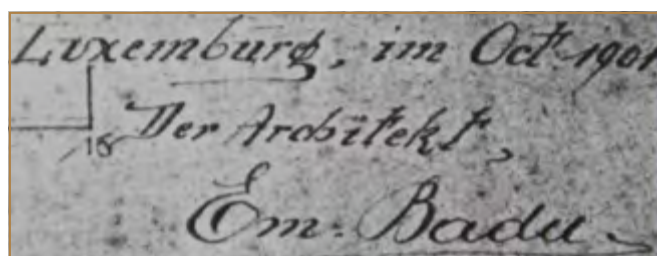 Luxemburg, im Oct. 1901
Der Architekt,
18
Em. Badu